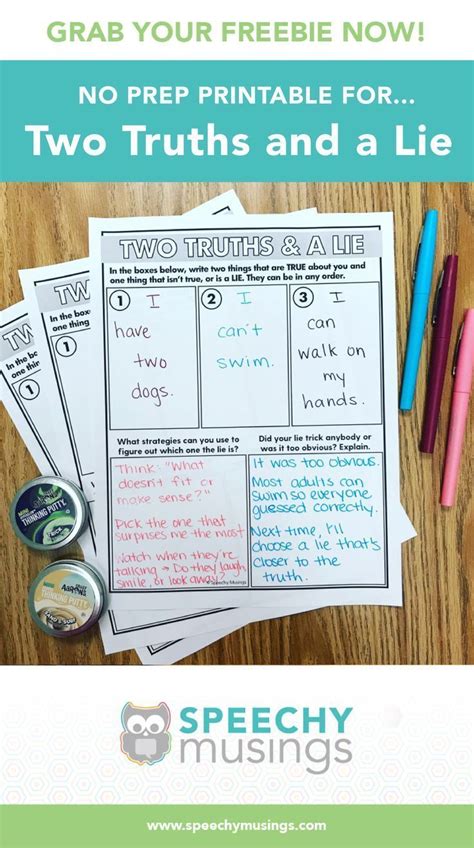 GRAB YOUR FREEBIE NOW!
NO PREP PRINTABLE FOR...
Two Truths and a Lie
TWO TRUTHS & A LIE
In the boxes below, write two things that are TRUE about you and
one thing that isn't true, or is a LIE. They can be in any order.
1 I
have
two
dogs.
2 I
can't
swim.
3 I
can
walk on
my
hands.
What strategies can you use to
figure out which one the lie is?
Think: "What
doesn't fit or
make sense?"
Pick the one that
surprises me the most
Watch when they're
talking → Do they laugh,
smile, or look away?
Did your lie trick anybody or
was it too obvious? Explain.
It was too obvious.
Most adults can
swim so everyone
guessed correctly.
Next time, I'll
choose a lie that's
closer to the
truth.
Speechy Musings
TW
In the box
one thing
1
TW
In the
one thi
1
1
THINKING PUTTY
AARON'S
THINKING PUTTY
SPEECHY
musings
www.speechymusings.com